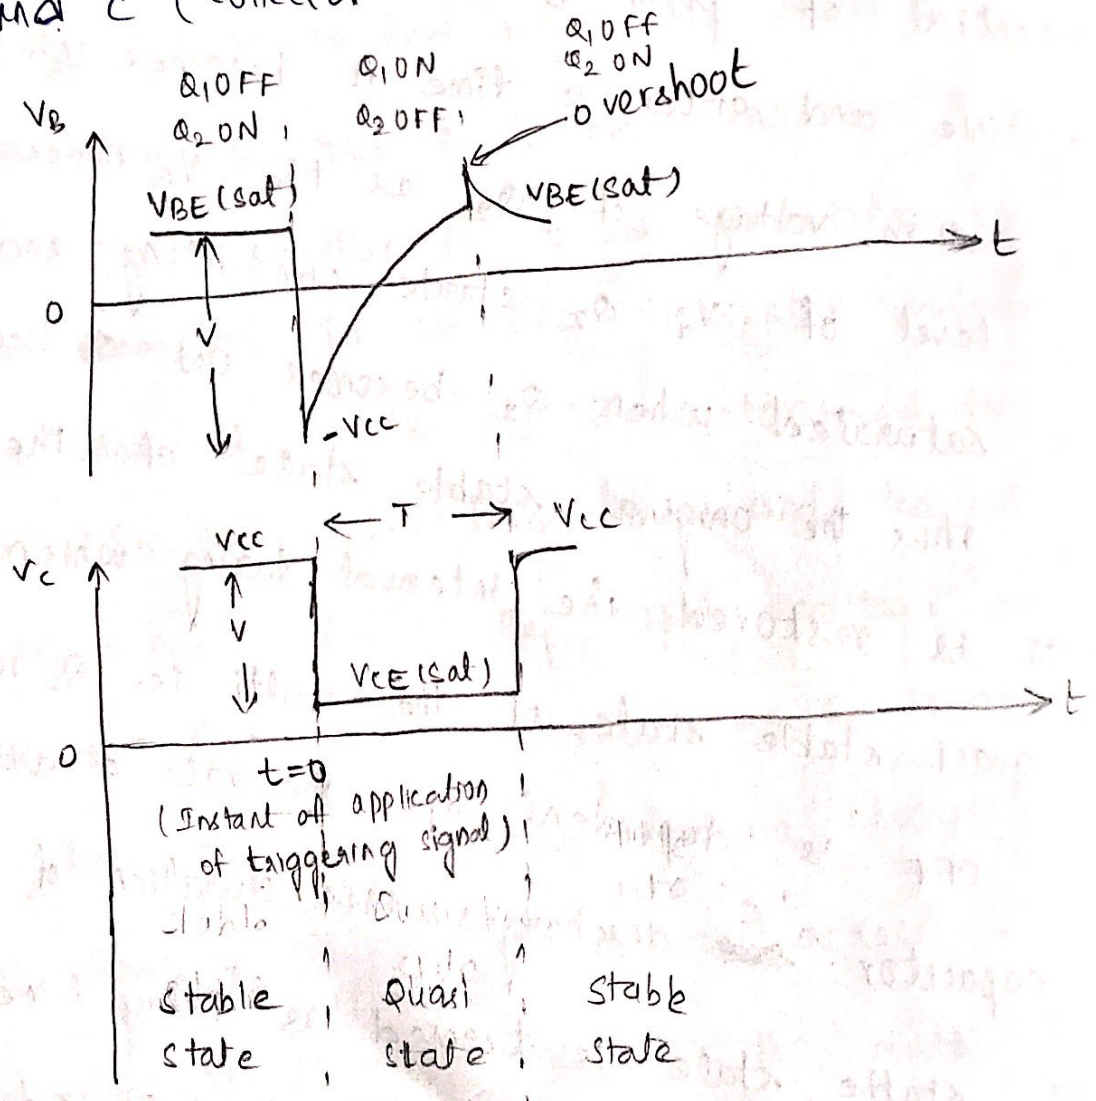 Q1 OFF
Q2 ON
Q1 ON
Q2 OFF
Q1 OFF
Q2 ON
overshoot
VB
VBE (sat)
VBE (sat)
t
0
V
-Vcc
T
Vcc
Vcc
Vc
V
VCE (sat)
t
0
t=0
(Instant of application
of triggering signal)
stable
state
Quasi
state
stable
state